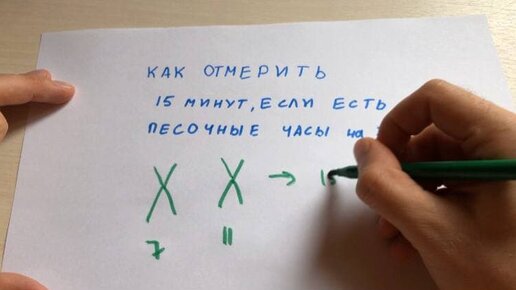 КАК ОТМЕРИТЬ
15 МИНУТ, ЕСЛИ ЕСТЬ
ПЕСОЧНЫЕ ЧАСЫ на
X X → 15
7 11